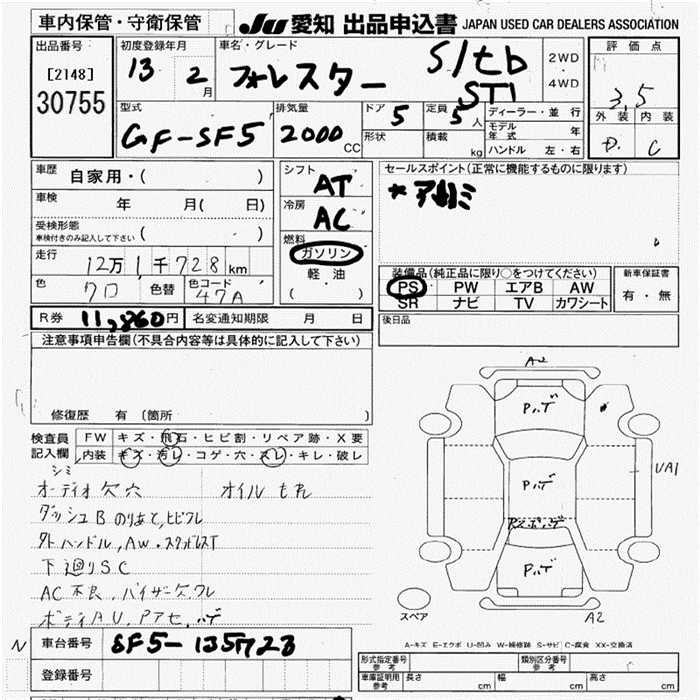 車内保管・守衛保管
JU 愛知 出品申込書 JAPAN USED CAR DEALERS ASSOCIATION
出品番号
[2148]
30755
初度登録年月
13 2月
車名・グレード
フォレスター S/tb
STI
2WD
・
4WD
評価点
3,5
外装 内装
C
型式
GF-SF5
排気量
2000CC
ドア 5
形状
定員 5人
積載 kg
ディーラー・並行
モデル年式 年
ハンドル 左・右
車歴
自家用・( )
車検
年 月( 日)
受検形態
車検付きのみ記入して下さい ( )
走行
12万1千728km
色 クロ 色替
色コード 47A
シフト
AT
冷房
AC
燃料
ガソリン
軽油
( )
セールスポイント(正常に機能するものに限ります)
*アルミ
装備品(純正品に限り○をつけてください)
PS PW エアB AW
SR ナビ TV カワシート
新車保証書
有・無
R券 11,860円
名変通知期限 月 日
後日品
注意事項申告欄(不具合内容等は具体的に記入して下さい)
修復歴 有〔箇所 〕
検査員記入欄
FW キズ・飛石・ヒビ割・リペア跡・X要
内装 キズ・汚レ・コゲ・穴・スレ・キレ・破レ
シミ
オーディオ欠穴 オイルもれ
ダッシュB のりあと,ヒビワレ
外ハンドル,AW・スタッドレスT
下廻りSC
AC不良,バイザー欠,ワレ
ボディAU,Pアセ,ハゲ
A2
Pハゲ
Pハゲ
Pハゲ
UA1
A2
スペア
A-キズ E-エクボ U-凹み W-補修跡 S-サビ C-腐食 XX-交換済
N
車台番号 SF5-135723
登録番号
形式指定番号 参考
類別区分番号 参考
車庫証明用 参考 長さ cm 幅 cm 高さ cm